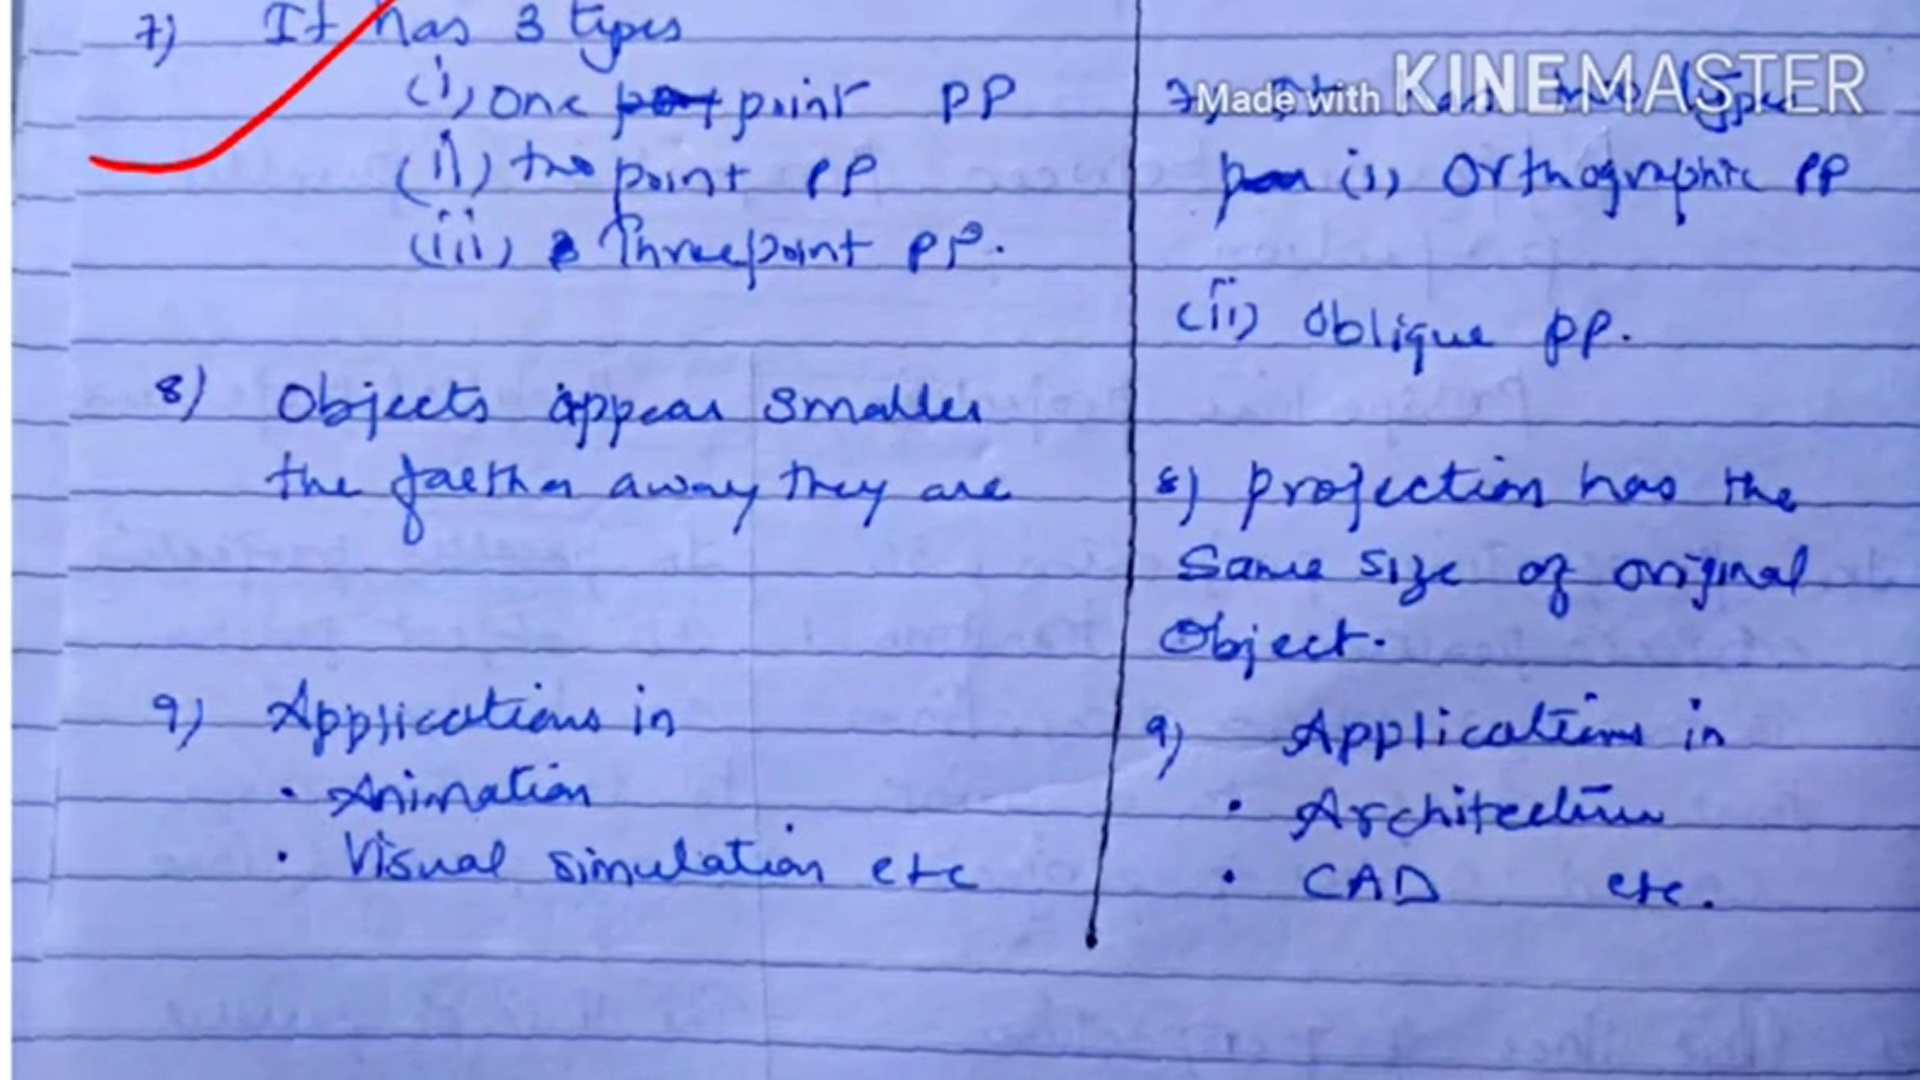 7) It has 3 types
(i) One point PP
(ii) two point PP
(iii) Three point PP.
8) Objects appear smaller
the farther away they are
9) Applications in
• Animation
• Visual simulation etc
Made with KINEMASTER
7) It has two types
(i) Orthographic PP
(ii) Oblique PP.
8) Projection has the
Same size of original
Object.
9) Applications in
• Architecture
• CAD etc.